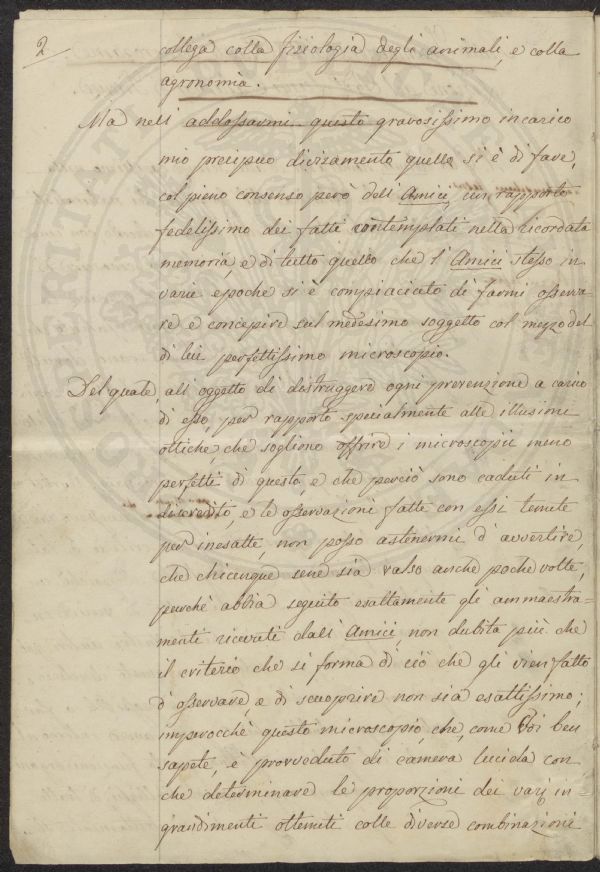 2
collega colla fisiologia degli animali, e colla
agronomia.
Ma nell' addossarmi questo gravosissimo incarico
mio precipuo divisamento quello si è di fare,
col pieno consenso però dell' Amici, un rapporto
fedelissimo dei fatti contemplati nella ricordata
memoria, e di tutto quello che l' Amici stesso in
varie epoche si è compiaciuto di farmi osserva-
re e concepire sul medesimo soggetto col mezzo del
di lui perfettissimo microscopio.
Del quale, all' oggetto di distruggere ogni prevenzione a carico
di esso, per rapporto specialmente alle illusioni
ottiche che sogliono offrire i microscopii meno
perfetti di questo, e che perciò sono caduti in
discredito, e le osservazioni fatte con essi tenute
per inesatte, non posso astenermi d' avvertire,
che chicunque sene sia valso anche poche volte,
purchè abbia seguito esattamente gli ammaestra-
menti ricevuti dall' Amici, non dubita più che
il criterio che si forma di ciò che gli vien fatto
d' osservare, e di scuoprire non sia esattissimo;
imperocchè questo microscopio, che, come Voi ben
sapete, è provveduto di camera lucida con
che determinare le proporzioni dei varj in-
grandimenti ottenuti colle diverse combinazioni